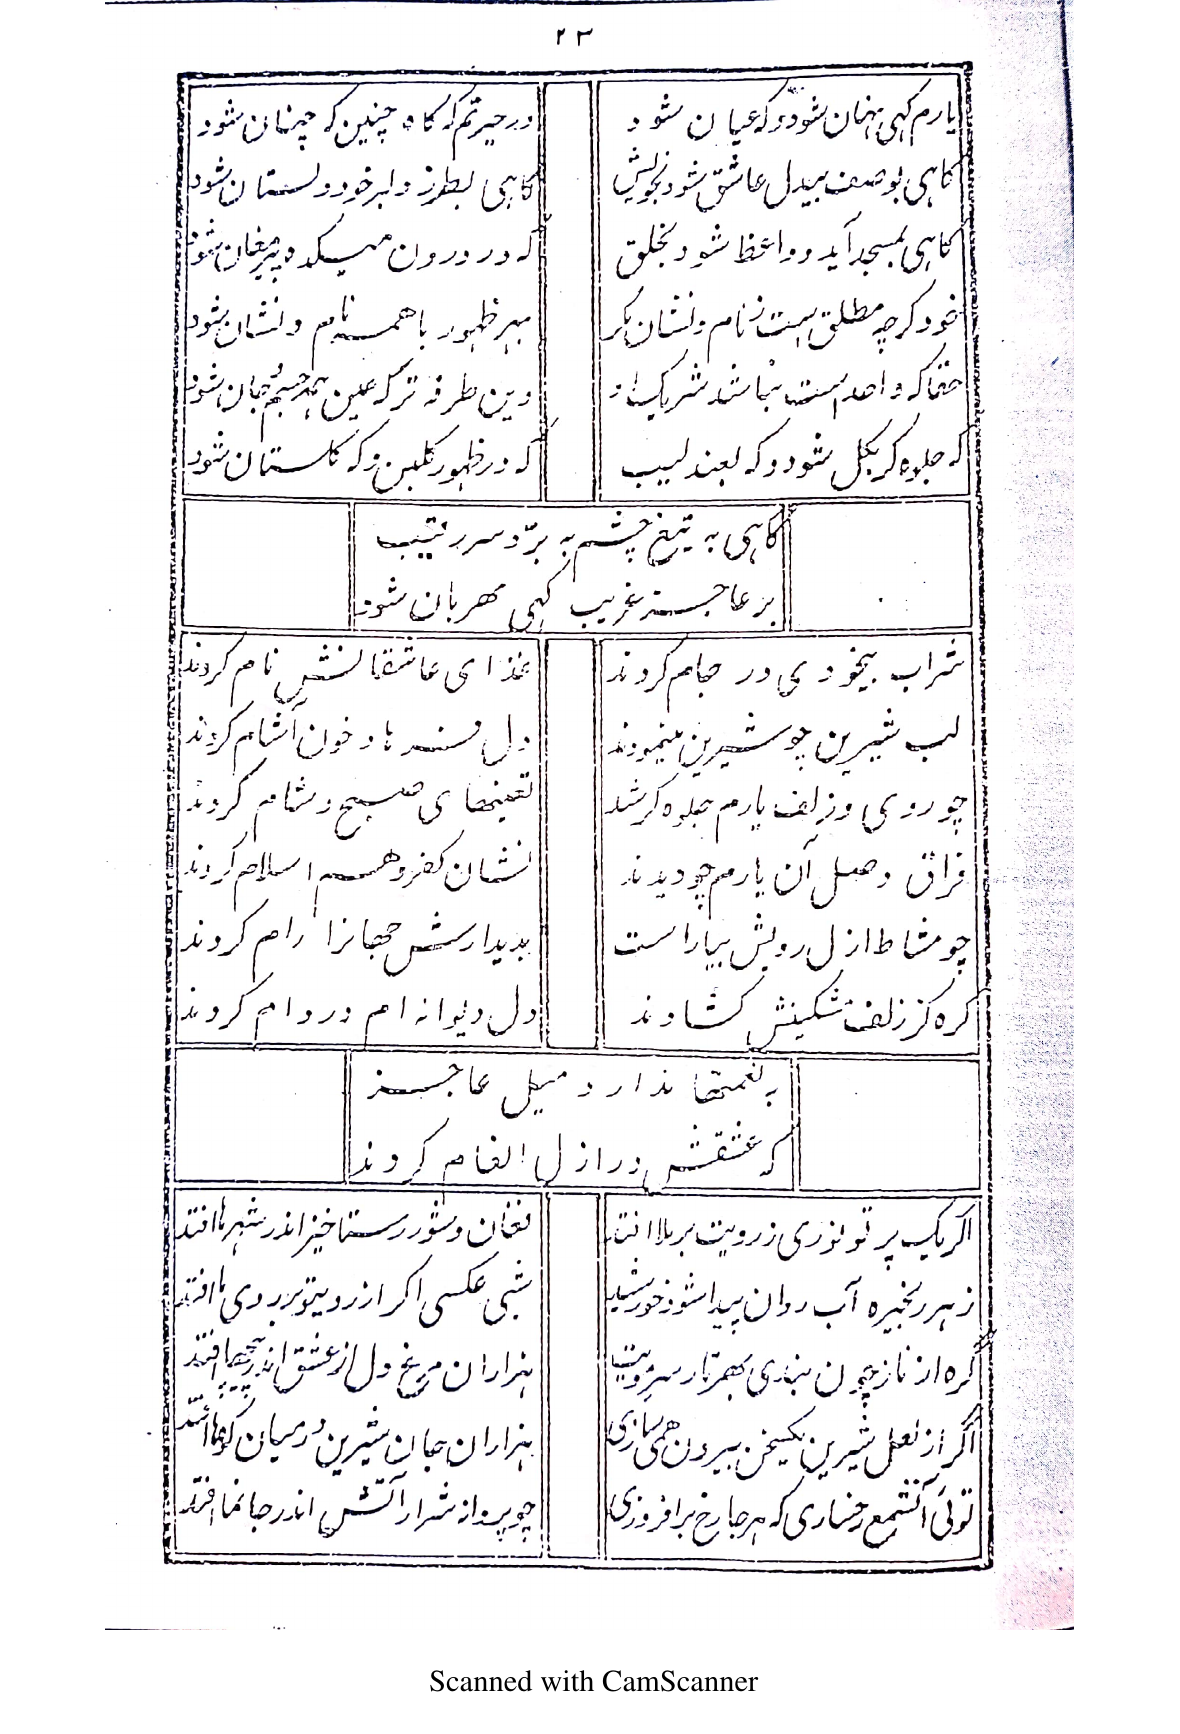 ۲۳
یارم کهی پنهان شود و که عیان شود
در حیرتم که کاه چنین که چنان شود
کاهی بوصف بیدل عاشق شود بخویش
کاهی بطرز دلبر خود دلستان شود
کاهی بمسجد آید و واعظ شود بخلق
که در درون میکده پیر مغان شود
خود کرچه مطلق است ز نام و نشان
بهر ظهور با همه نام و نشان شود
حقا که واحد است نباشد شریک او
وین طرفه تر که عین همه جسم و جان شود
که جلوه کر بکل شود و که بعندلیب
که در ظهور کلبن و که کلستان شود
کاهی به تیغ چشم به برّد سر رقیب
بر عاجز غریب کهی مهربان شود
شراب بیخودی در جام کردند
غذای عاشقانش نام کردند
لب شیرین چو شیرین مینمودند
دل فرهاد خون آشام کردند
چو روی و زلف یارم جلوه کر شد
تعینهای صبح و شام کردند
فراق وصل آن یارم چو دیدند
نشان کفر و هم اسلام کردند
چو مشاط ازل رویش بیاراست
بدیدارش جهانرا رام کردند
کره کز زلف مشکینش کشادند
دل دیوانه ام در دام کردند
به نعمتها ندارد میل عاجز
که عشقش در ازل انعام کردند
اکر یک پرتو نوری ز رویت بر ملا افتد
فغان و شور رستاخیز اندر شهرها افتد
ز هر زنجیره آب روان پیدا شود خورشید
شبی عکسی اکر از رویتو بر روی ما افتد
کره از ناز چون بندی بهر تار سر مویت
هزاران مرغ دل از عشق اندر پیچها افتد
اکر از لعل شیرین یکسخن بیرون همی سازی
هزاران جان شیرین در میان کوها افتد
توئی آنشمع رخساری که هر جا رخ بر افروزی
چو پروانه شرار آتش اندر جانها افتد
Scanned with CamScanner